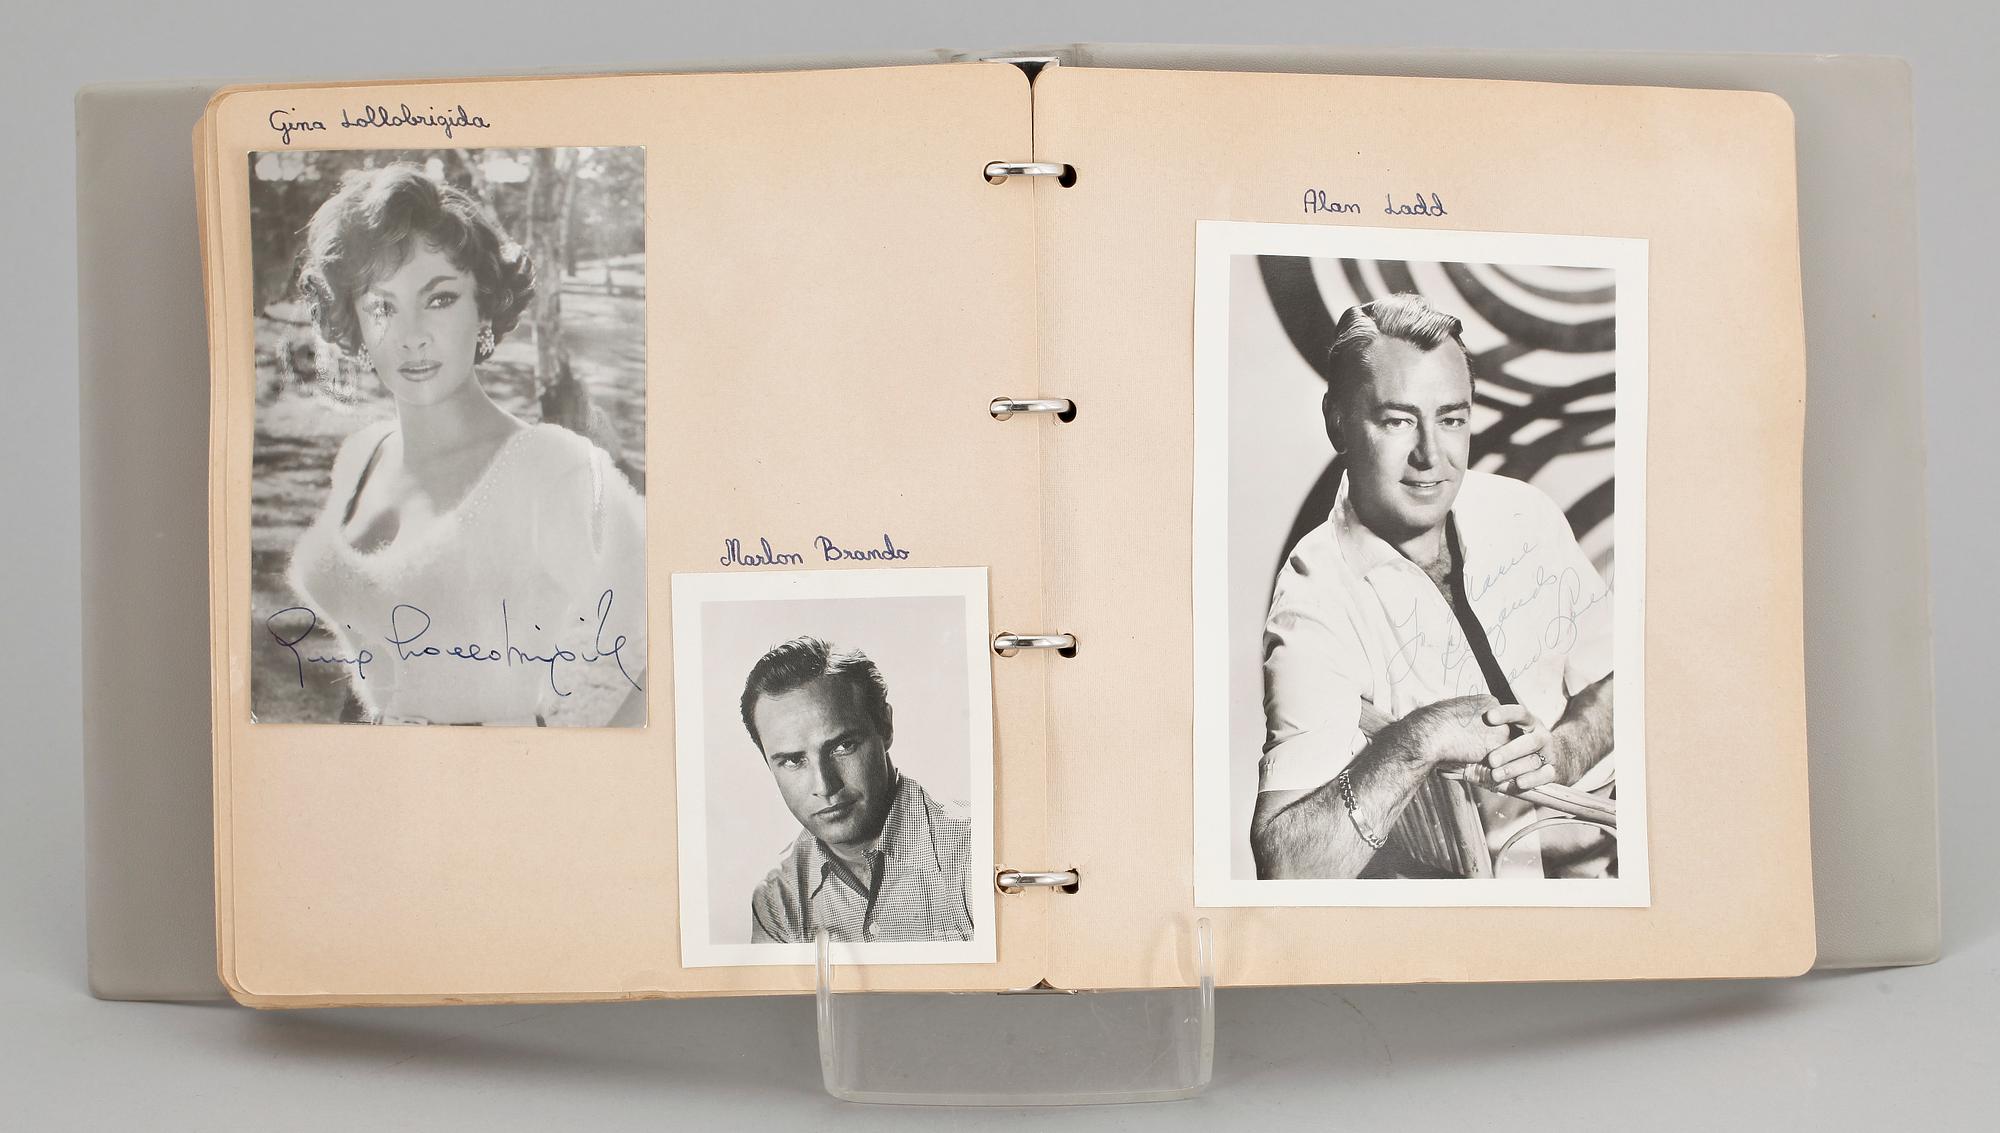 Gina Lollobrigida
Gina Lollobrigida
Marlon Brando
Alan Ladd
To Marie
Regards
Alan Ladd